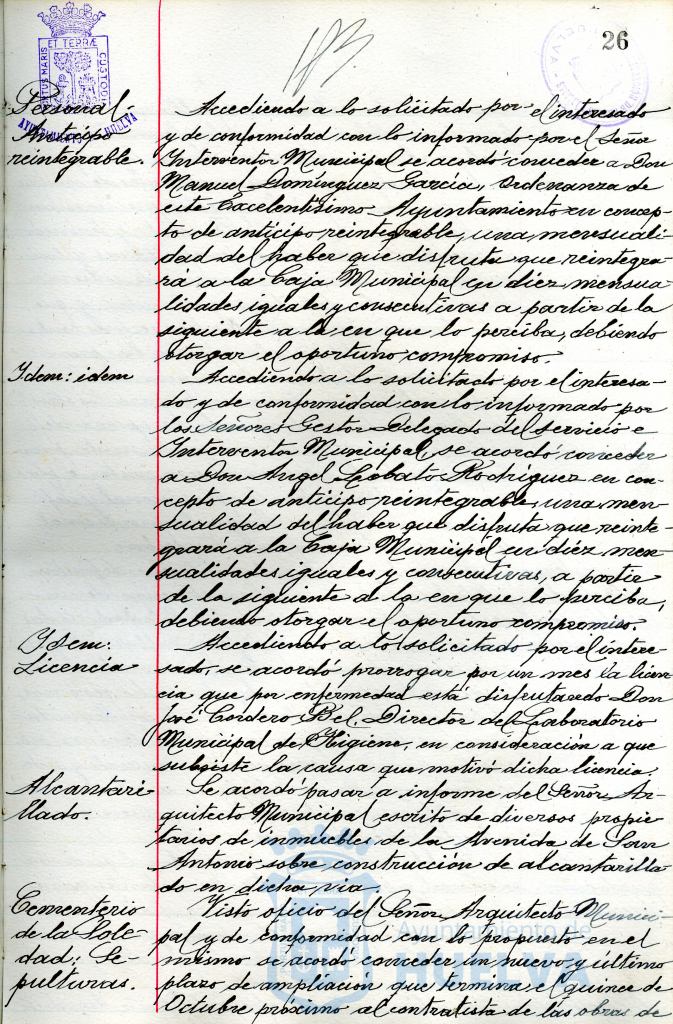 26
PORTUS MARIS ET TERRÆ CUSTODIA
AYUNTAMIENTO HUELVA
Personal-
Anticipo
reintegrable.
Accediendo a lo solicitado por el interesado
y de conformidad con lo informado por el Señor
Interventor Municipal se acordó conceder a Don
Manuel Domínguez García, Ordenanza de
este Excelentísimo Ayuntamiento en concep-
to de anticipo reintegrable, una mensuali-
dad del haber que disfruta que reintegra-
rá a la Caja Municipal en diéz mensua-
lidades iguales y consecutivas a partir de la
siguiente a la en que lo perciba, debiendo
otorgar el oportuno compromiso.
Idem: idem
Accediendo a lo solicitado por el interesa-
do y de conformidad con lo informado por
los Señores Gestor Delegado del servicio e
Interventor Municipal, se acordó, conceder
a Don Angel Lobato Rodríguez en con-
cepto de anticipo reintegrable, una men-
sualidad del haber que disfruta que reinte-
grará a la Caja Municipal en diéz men-
sualidades iguales y consecutivas, a partir
de la siguiente a la en que lo perciba,
debiendo otorgar el oportuno compromiso.
Idem:
Licencia
Accediendo a lo solicitado por el intere-
sado, se acordó prorrogar por un mes la licen-
cia que por enfermedad está disfrutando Don
José Cordero Bel, Director del Laboratorio
Municipal de Higiene, en consideración a que
subsiste la causa que motivó dicha licencia.
Alcantari-
llado.
Se acordó pasar a informe del Señor Ar-
quitecto Municipal escrito de diversos propie-
tarios de inmuebles de la Avenida de San
Antonio sobre construcción de alcantarilla-
do en dicha via.
Cementerio
de la Sole-
dad: Se-
pulturas.
Visto oficio del Señor Arquitecto Munici-
pal y de conformidad con lo propuesto en el
mismo se acordó conceder un nuevo y último
plazo de ampliación que termina el quince de
Octubre próximo al contratista de las obras de
Ayuntamiento de
HUELVA